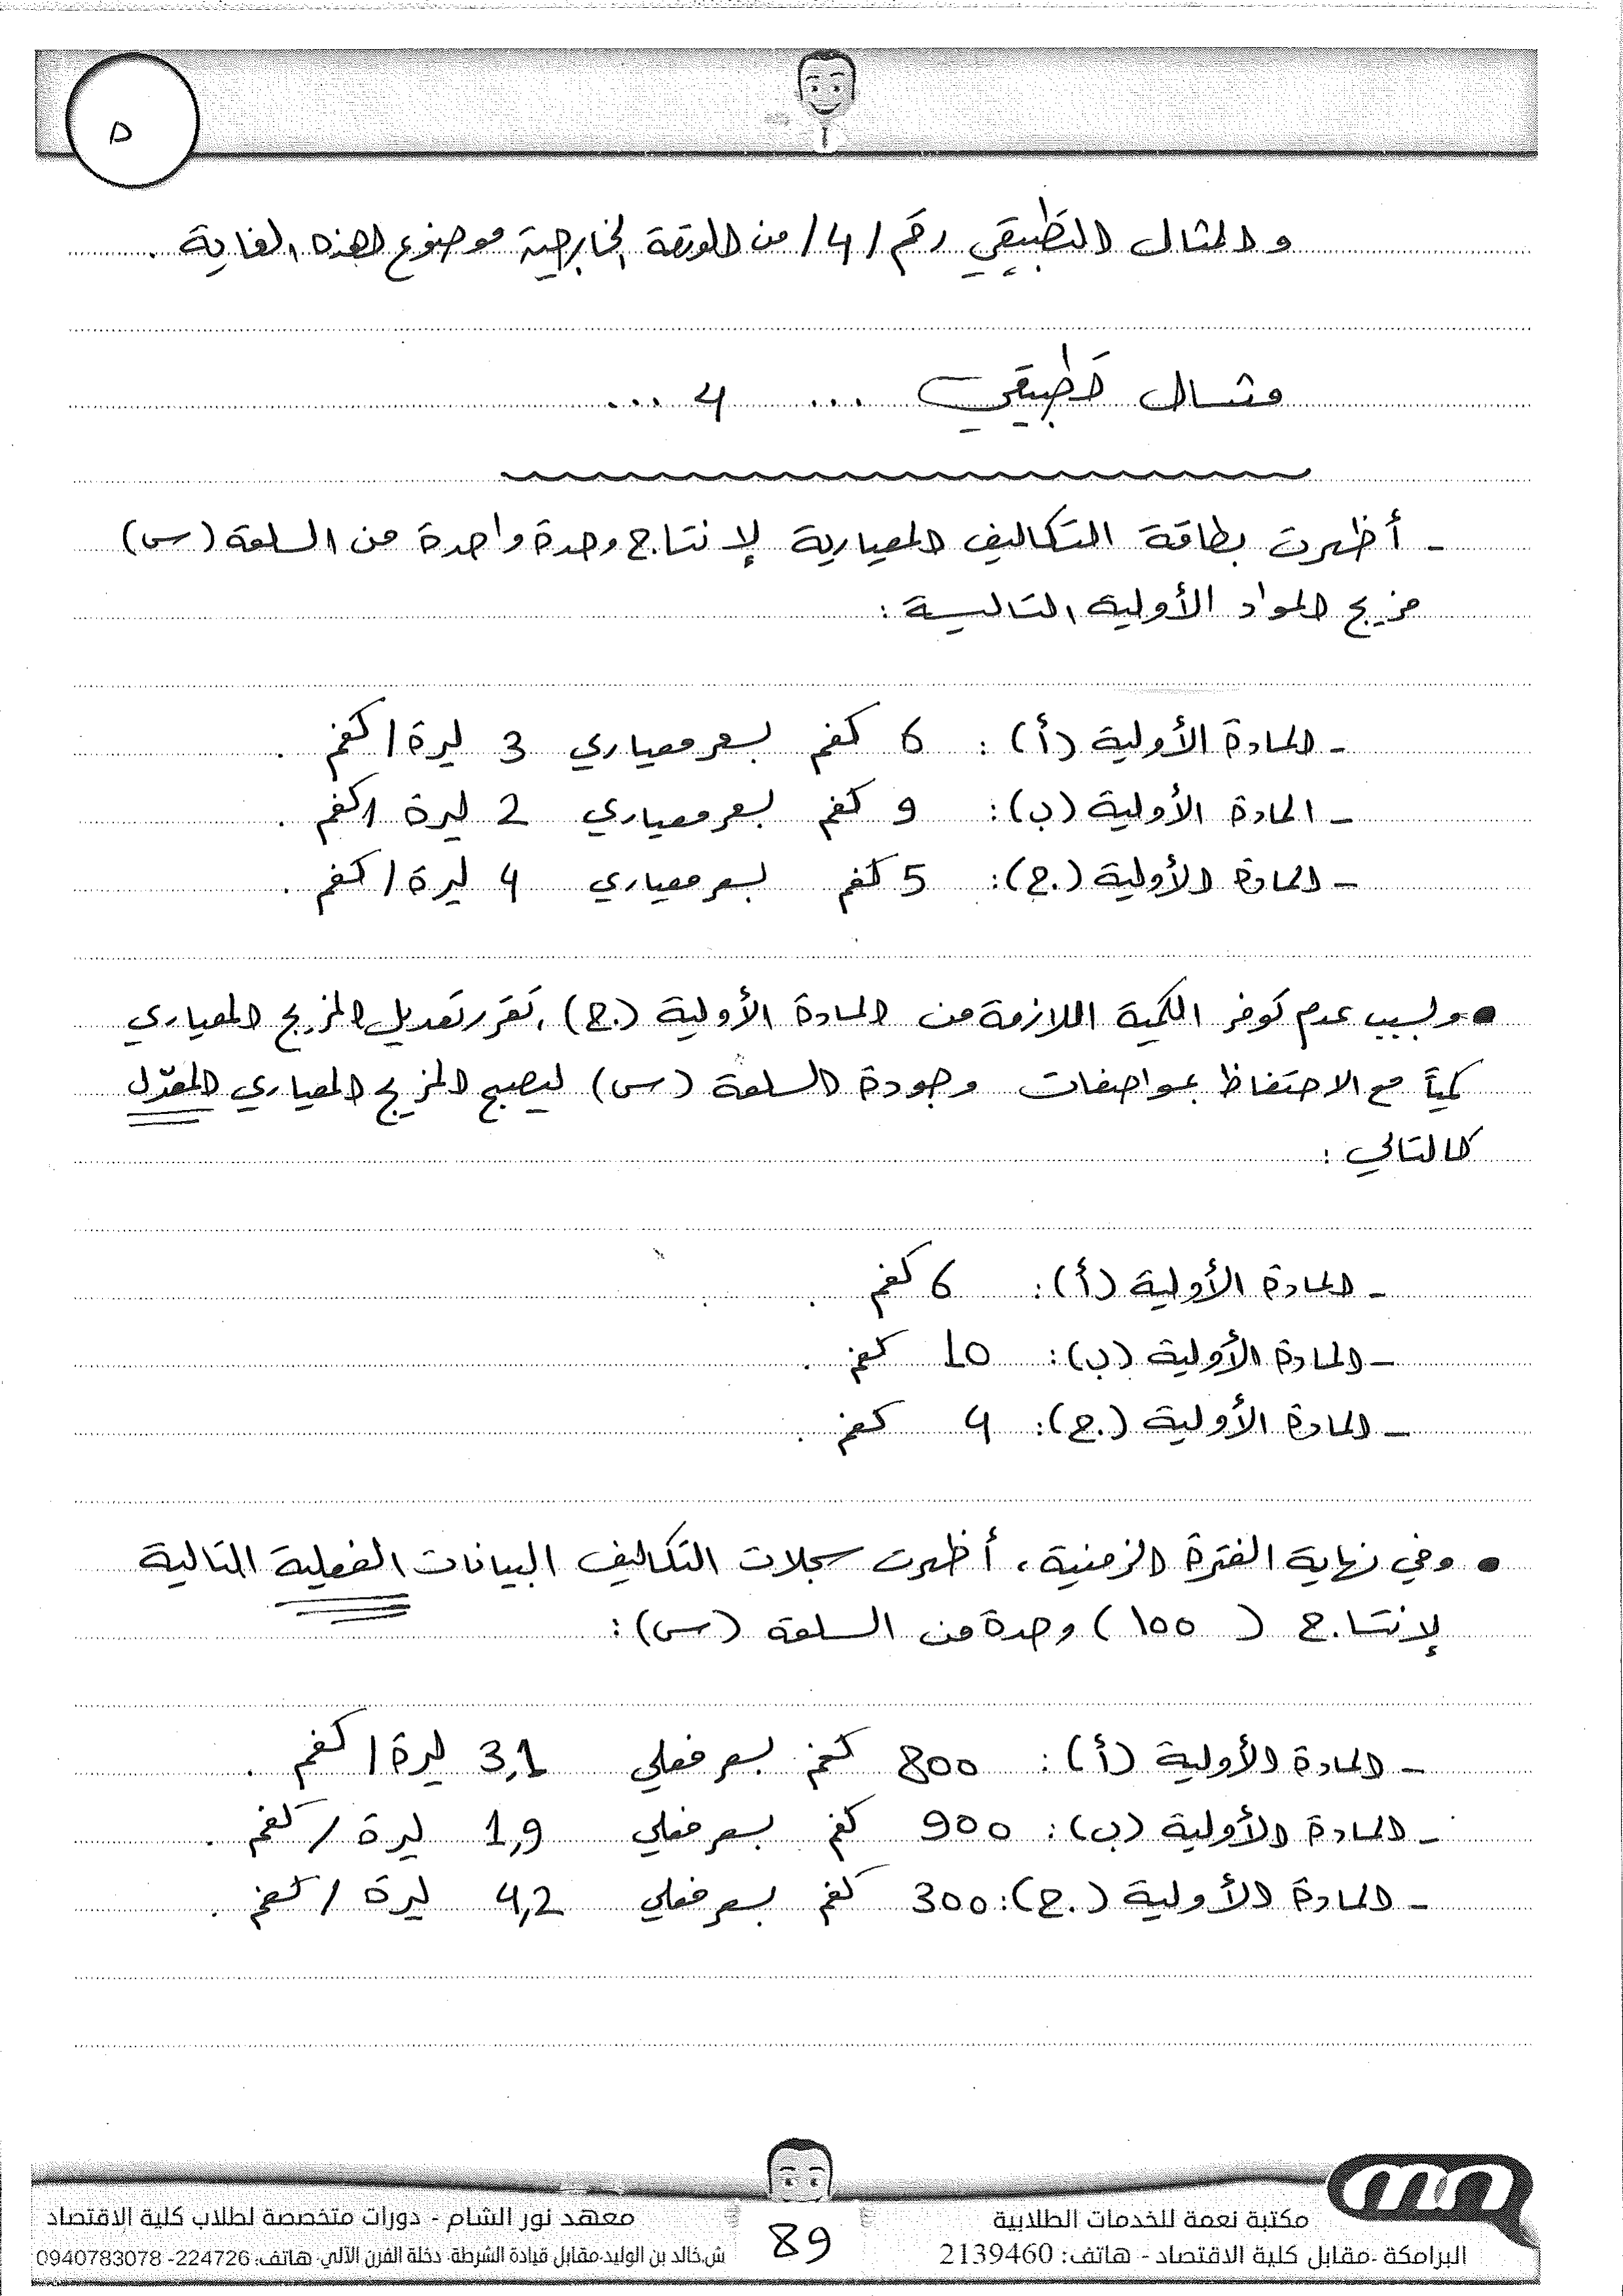 ٥
والمثال التطبيقي رقم /4/ من الورقة الخارجية موضوع لهذه الغاية .
مثال تطبيقي ... 4 ...
- أظهرت بطاقة التكاليف المعيارية لإنتاج وحدة واحدة من السلعة (س)
مزيج المواد الأولية التالية :
- المادة الأولية (أ) : 6 كغم بسعر معياري 3 ليرة / كغم .
- المادة الأولية (ب) : 9 كغم بسعر معياري 2 ليرة / كغم .
- المادة الأولية (ج) : 5 كغم بسعر معياري 4 ليرة / كغم .
• وبسبب عدم توفر الكمية اللازمة من المادة الأولية (ج) ، تقرر تعديل المزيج المعياري
كمياً مع الاحتفاظ بمواصفات وجودة السلعة (س) ليصبح المزيج المعياري المعدّل
كالتالي :
- المادة الأولية (أ) : 6 كغم .
- المادة الأولية (ب) : 10 كغم .
- المادة الأولية (ج) : 4 كغم .
• وفي نهاية الفترة الزمنية ، أظهرت سجلات التكاليف البيانات الفعلية التالية
لإنتاج ( 100 ) وحدة من السلعة (س) :
- المادة الأولية (أ) : 800 كغم بسعر فعلي 3,1 ليرة / كغم .
- المادة الأولية (ب) : 900 كغم بسعر فعلي 1,9 ليرة / كغم .
- المادة الأولية (ج) : 300 كغم بسعر فعلي 4,2 ليرة / كغم .
مكتبة نعمة للخدمات الطلابية
البرامكة -مقابل كلية الاقتصاد - هاتف: 2139460
89
معهد نور الشام - دورات متخصصة لطلاب كلية الاقتصاد
ش.خالد بن الوليد-مقابل قيادة الشرطة- دخلة الفرن الآلي- هاتف: 224726- 0940783078